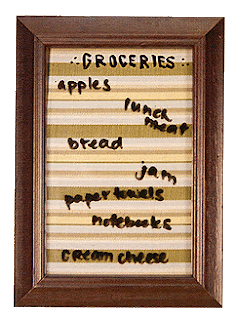 ∴GROCERIES∴
apples
lunch
meat
bread
jam
paper towels
notebooks
cream cheese